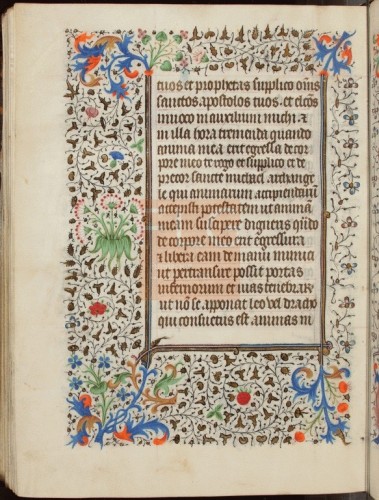 tuos et prophetas supplico om̄s
sanctos apostolos tuos et
inuoco in auxilium michi &
in illa hora tremenda quando
anima mea erit egressa de cor
pore meo te rogo et supplico et de
precor sancte michael archange
le qui animarum accipiendarū
accepisti potestatem ut animā
meam suscipere digneris qn̄do
de corpore meo erit egressura
& libera eam de manu inimici
ut pertransire possit portas
infernorum et uias tenebrar
ut nō se apponat leo vel draco
qui consuetus est animas in